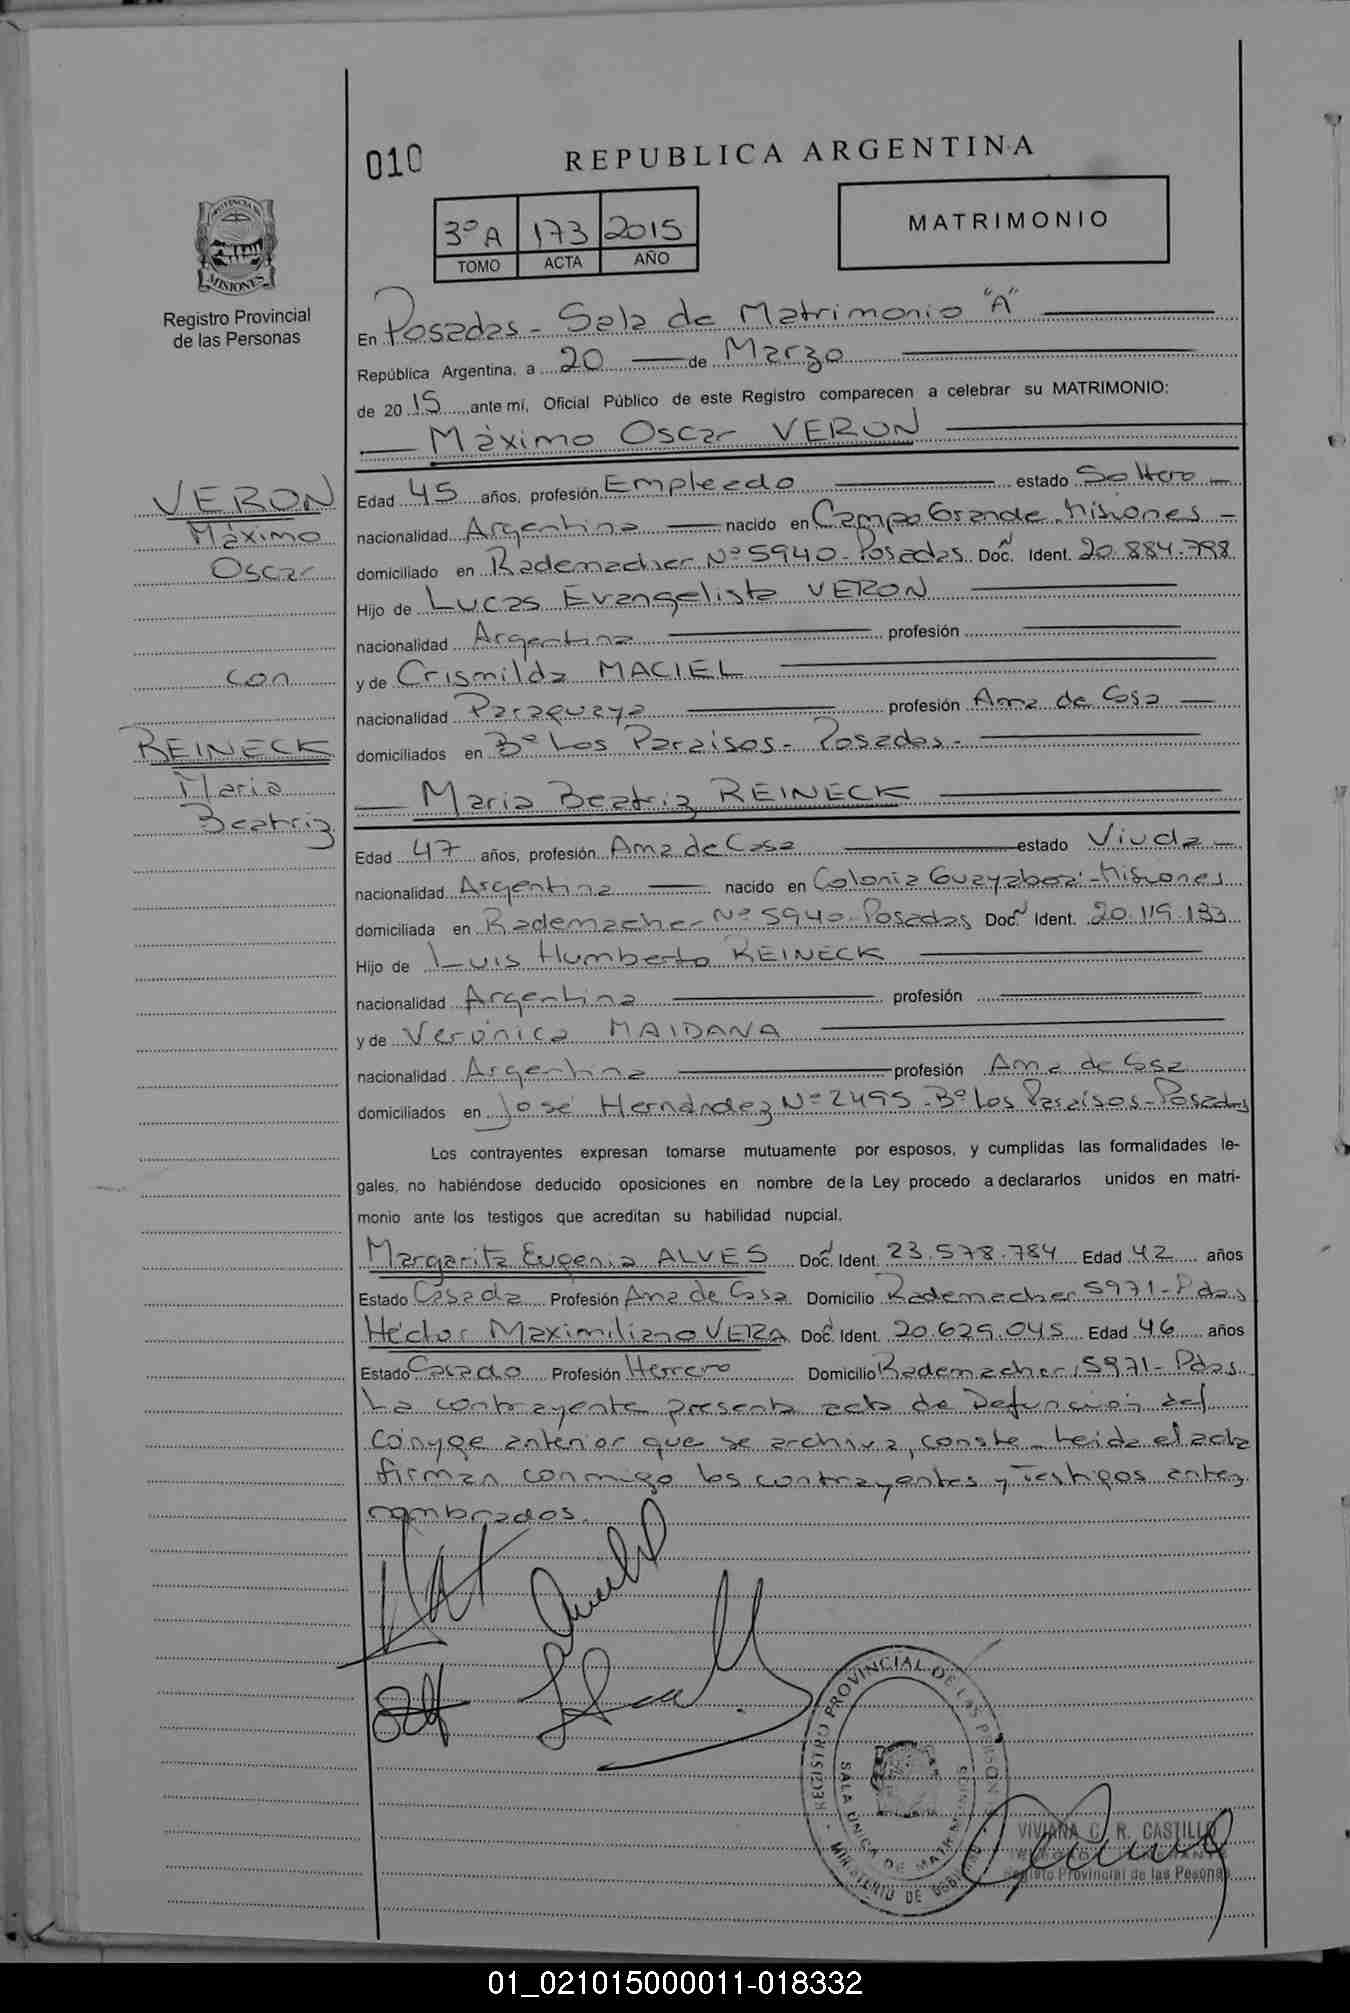 010
REPUBLICA ARGENTINA
PROVINCIA DE
MISIONES
Registro Provincial
de las Personas
3º A 173 2015
TOMO ACTA AÑO
MATRIMONIO
En Posadas - Sala de Matrimonio "A"
República Argentina, a 20 de Marzo
de 20 15 ante mí, Oficial Público de este Registro comparecen a celebrar su MATRIMONIO:
Máximo Oscar VERON
VERON
Máximo
Oscar
con
REINECK
Maria
Beatriz
Edad 45 años, profesión Empleado estado Soltero
nacionalidad Argentina nacido en Campo Grande - Misiones -
domiciliado en Rademacher Nº 5940 - Posadas Doc. Ident. 20.884.798
Hijo de Lucas Evangelista VERON
nacionalidad Argentina profesión
y de Crismilda MACIEL
nacionalidad Paraguaya profesión Ama de Casa
domiciliados en Bº Los Paraisos - Posadas -
Maria Beatriz REINECK
Edad 47 años, profesión Ama de Casa estado Viuda
nacionalidad Argentina nacido en Colonia Guayabera - Misiones
domiciliada en Rademacher Nº 5940 - Posadas Doc. Ident. 20.119.193
Hijo de Luis Humberto REINECK
nacionalidad Argentina profesión
y de Verónica MAIDANA
nacionalidad Argentina profesión Ama de Casa
domiciliados en José Hernández Nº 2495 - Bº Los Paraisos - Posadas
Los contrayentes expresan tomarse mutuamente por esposos, y cumplidas las formalidades le-
gales, no habiéndose deducido oposiciones en nombre de la Ley procedo a declararlos unidos en matri-
monio ante los testigos que acreditan su habilidad nupcial.
Margarita Eugenia ALVES Doc. Ident. 23.578.784 Edad 42 años
Estado Casada Profesión Ama de Casa Domicilio Rademacher 5971 - Pdas
Héctor Maximiliano VERA Doc. Ident. 20.629.045 Edad 46 años
Estado Casado Profesión Herrero Domicilio Rademacher 5971 - Pdas.
La contrayente presenta acta de Defunción del
cónyge anterior que se archiva, conste - Leida el acta
firman conmigo los contrayentes y Testigos antes
nombrados.
REGISTRO PROVINCIAL DE LAS PERSONAS
SALA UNICA DE MATRIMONIOS
MINISTERIO DE GOBIERNO
VIVIANA C. R. CASTILLO
Registro Provincial de las Pesonas
01_021015000011-018332